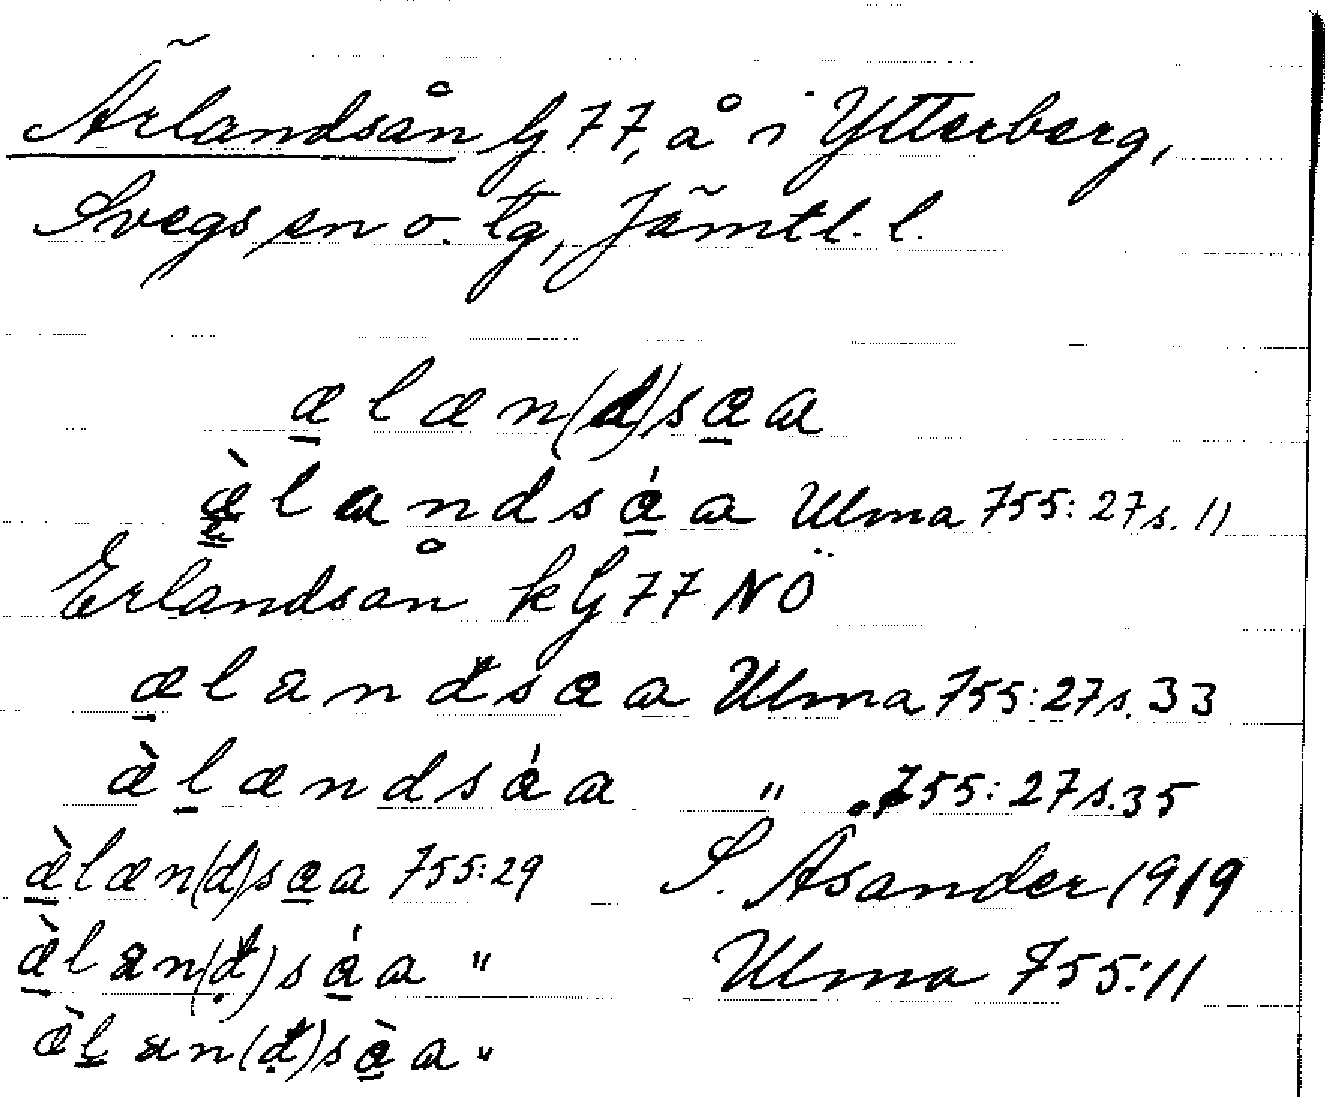 Ärlandsån G 77, å i Ytterberg,
Svegs sn o. tg, Jämtl. l.
æ̲læn(d)sæ̲a
æ̲̀landsǽ̲a Ulma 755:27 s. 11
Erlandsån kG 77 NÖ
æ̲landsæa Ulma 755:27 s. 33
æ̀l̲ændsǽa " 755:27 s. 35
æ̲̀læn(d)sæ̲a 755:29 S. Åsander 1919
æ̲̀lan(d)sǽ̲a " Ulma 755:11
æ̀l̲an(d)sæ̲̀a "